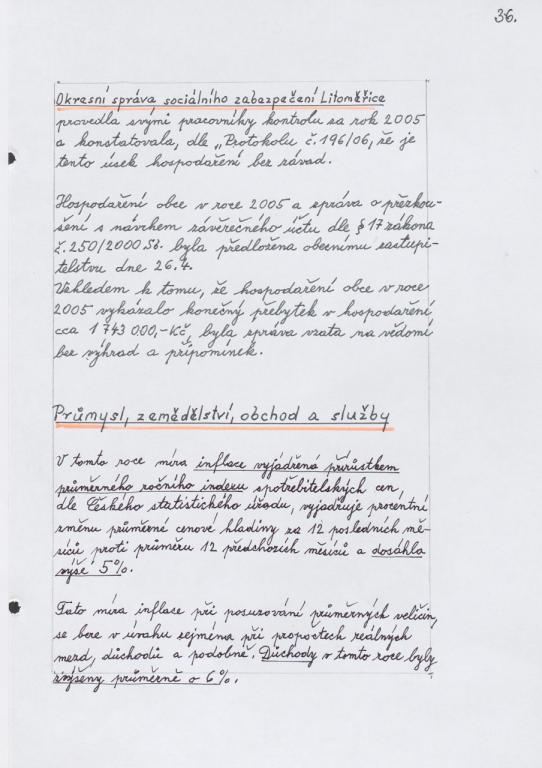 36.
Okresní správa sociálního zabezpečení Litoměřice
provedla svými pracovníky kontrolu za rok 2005
a konstatovala, dle „Protokolu č. 196/06, že je
tento úsek hospodaření bez závad.
Hospodaření obce v roce 2005 a zpráva o přezkou-
šení s návrhem závěrečného účtu dle § 17 zákona
č. 250/2000 Sb. byla předložena obecnímu zastupi-
telstvu dne 26.4.
Vzhledem k tomu, že hospodaření obce v roce
2005 vykázalo konečný přebytek v hospodaření
cca 1 743 000,-Kč, byla zpráva vzata na vědomí
bez výhrad a připomínek.
Průmysl, zemědělství, obchod a služby
V tomto roce míra inflace vyjádřená přírůstkem
průměrného ročního indexu spotřebitelských cen,
dle Českého statistického úřadu, vyjadřuje procentní
změnu průměrné cenové hladiny za 12 posledních mě-
síců proti průměru 12 předchozích měsíců a dosáhla
výše 5%.
Tato míra inflace při posuzování průměrných veličin,
se bere v úvahu zejména při propočtech reálných
mezd, důchodů a podobně. Důchody v tomto roce byly
zvýšeny průměrně o 6%.